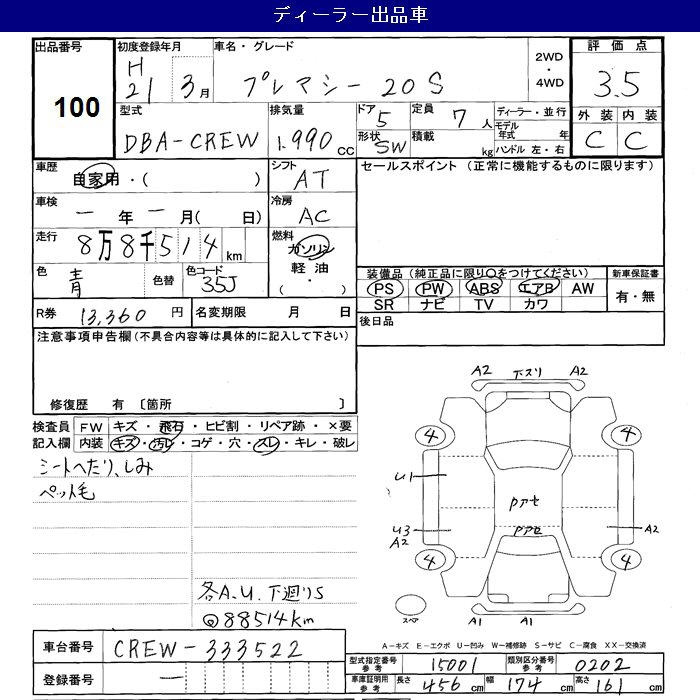 ディーラー出品車
出品番号 100
初度登録年月 H21 3月
車名・グレード プレマシー 20S
2WD・4WD
評価点 3.5
型式 DBA-CREW
排気量 1,990 cc
ドア 5
形状 SW
定員 7人
積載 kg
ディーラー・並行
モデル年式 年
ハンドル 左・右
外装 内装
C C
車歴 自家用・( )
シフト AT
セールスポイント (正常に機能するものに限ります)
車検 一年一月( 日)
冷房 AC
走行 8万8千514km
燃料 ガソリン 軽油 ( ・ )
色 青 色替
色コード 35J
装備品 (純正品に限り○をつけてください)
新車保証書 有・無
PS PW ABS エアB AW
SR ナビ TV カワ
R券 13,360円
名変期限 月 日
後日品
注意事項申告欄(不具合内容等は具体的に記入して下さい)
修復歴 有 〔箇所 〕
検査員記入欄
FW キズ・飛石・ヒビ割・リペア跡・×要
内装 キズ・汚レ・コゲ・穴・スレ・キレ・破レ
シートへたり、しみ
ペット毛
各A.U.下廻りS
@88514km
A2 下スリ A2
4 4
U1
Pアセ
Pアセ
U3 A2
A2
4 4
スペア
A1 A1
A-キズ E-エクボ U-凹み W-補修跡 S-サビ C-腐食 XX-交換済
車台番号 CREW-333522
登録番号 一
型式指定番号 参考 15001
類別区分番号 参考 0202
車庫証明用 参考 長さ 456cm 幅 174cm 高さ 161cm